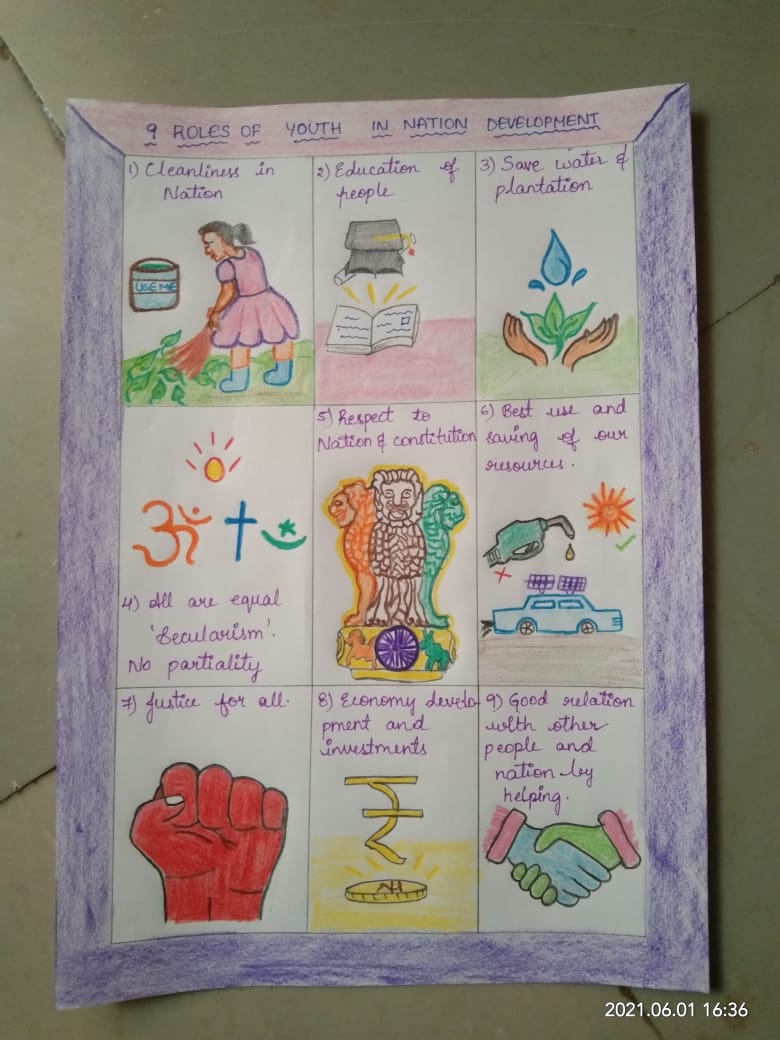 9 ROLES OF YOUTH IN NATION DEVELOPMENT
1) Cleanliness in
Nation
USE ME
2) Education of
people
3) Save water &
plantation
ॐ
4) All are equal
'Secularism'.
No partiality
5) Respect to
Nation & constitution
6) Best use and
saving of our
resources.
7) Justice for all.
8) Economy develo-
pment and
investments
₹
9) Good relation
with other
people and
nation by
helping.
2021.06.01 16:36